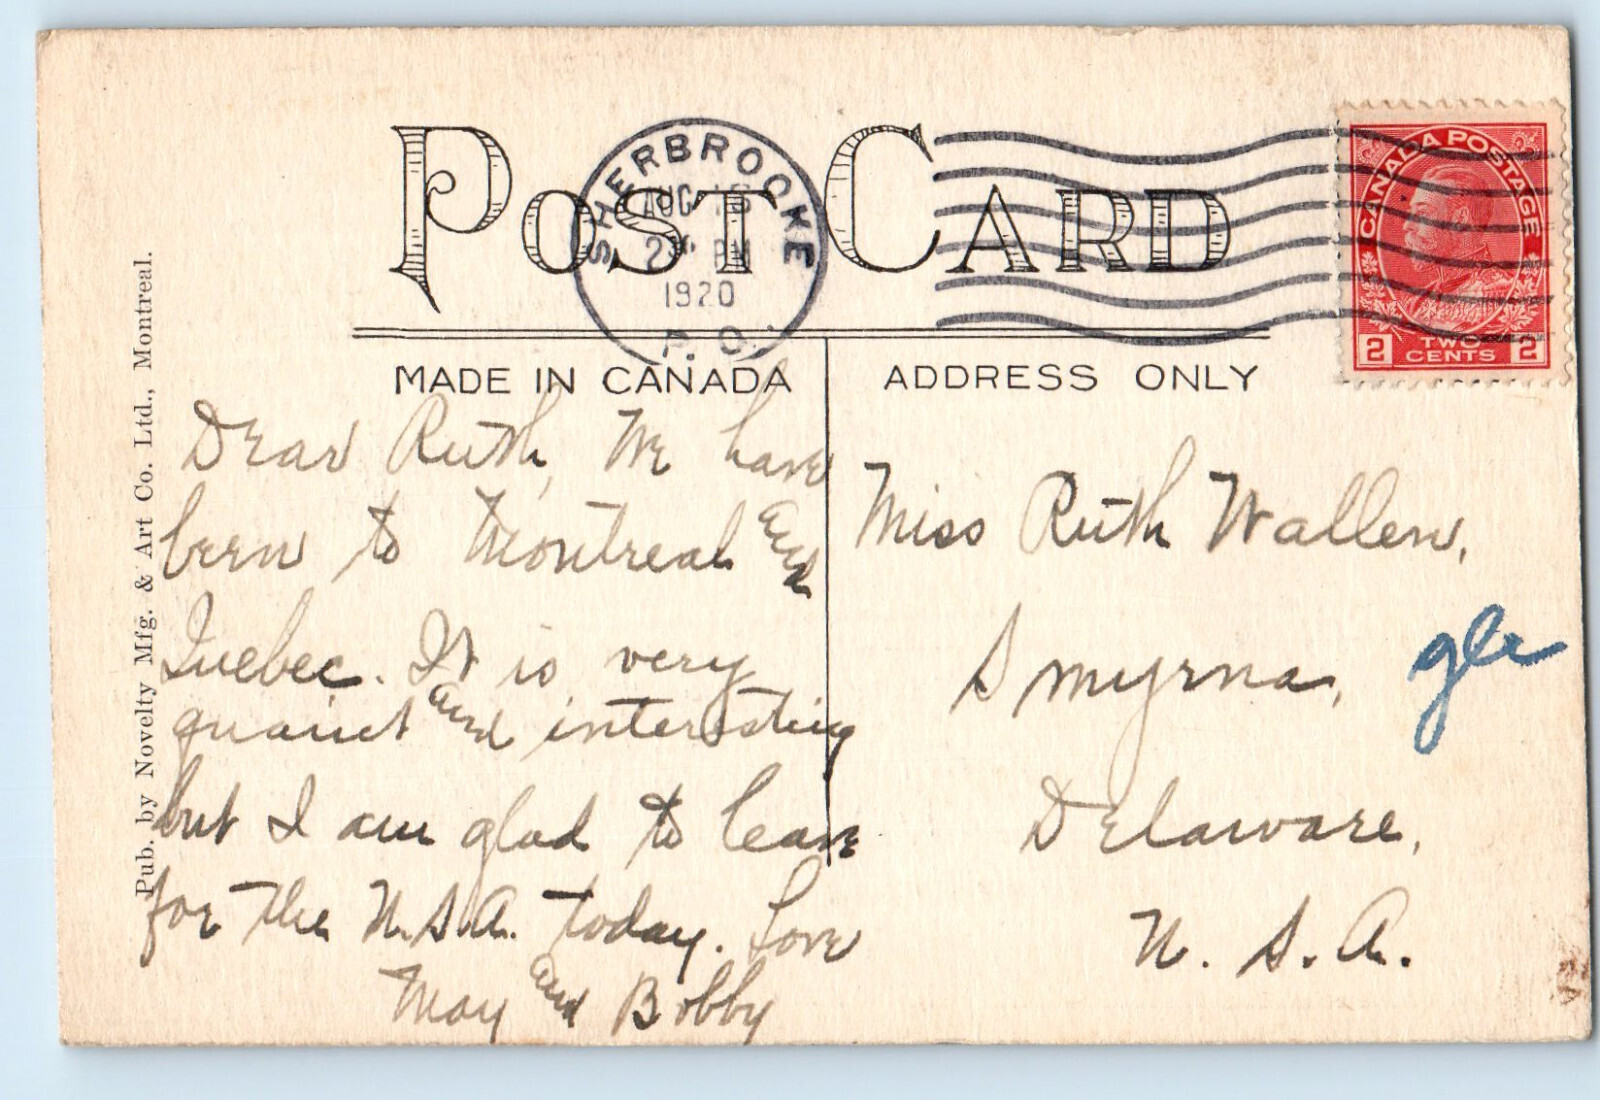 POST CARD
SHERBROOKE
AUG 16
PM
1920
P.O.
CANADA POSTAGE
2 TWO CENTS 2
MADE IN CANADA
ADDRESS ONLY
Pub. by Novelty Mfg. & Art Co. Ltd., Montreal.
Dear Ruth, We have
been to Montreal and
Quebec. It is very
quaint and interesting
but I am glad to leave
for the U.S.A. today. Love
May and Bobby
Miss Ruth Wallen,
Smyrna,
Delaware,
U. S. A.